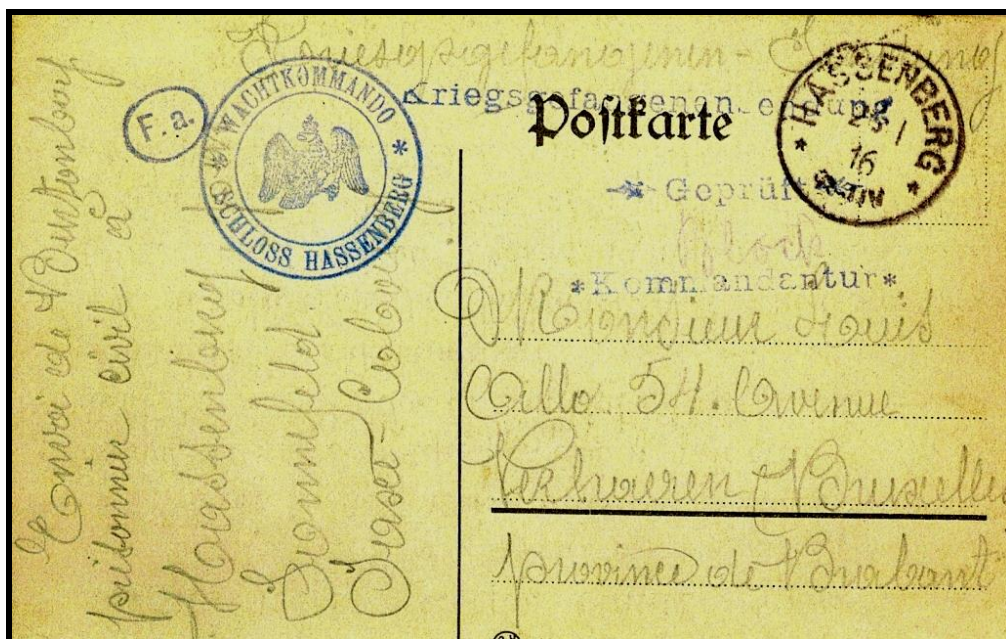 Kriegsgefangenen-Sendung
Kriegsgefangenensendung
Postkarte
F. a.
WACHTKOMMANDO
* SCHLOSS HASSENBERG *
* HASSENBERG *
16
* Geprüft
*Kommandantur*
Monsieur Louis
Allo. 54. Avenue
Verhaeren Bruxelles
province de Brabant
Envoi de
prisonnier civil à
Hassenberg
Sonnefeld.
Saxe-Cobourg